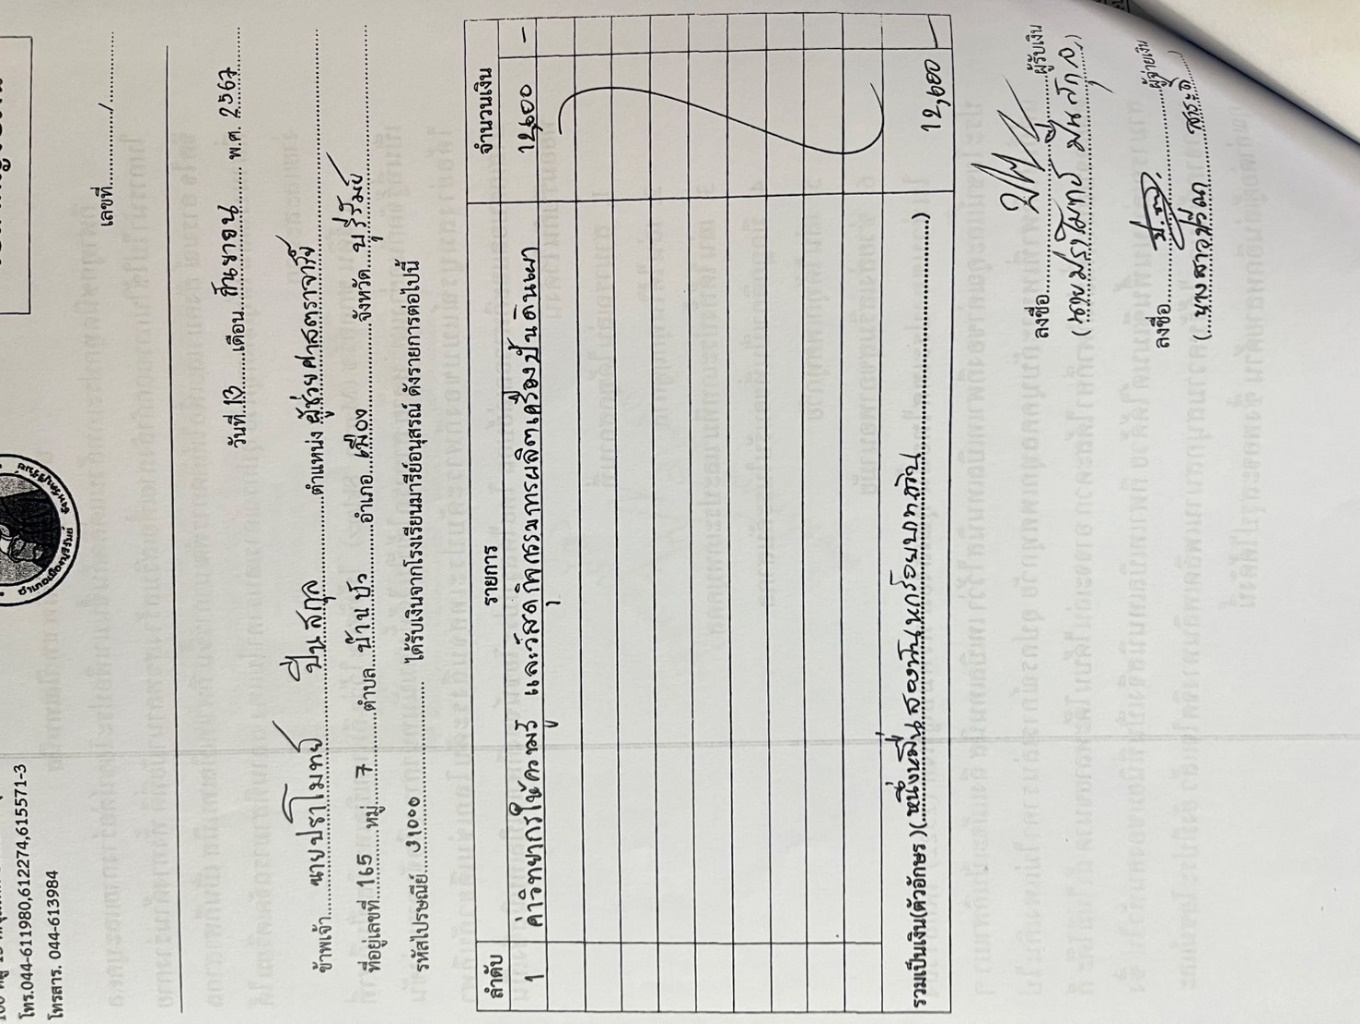 โทร.044-611980,612274,615571-3
โทรสาร. 044-613984
เลขที่............/............
วันที่..13......เดือน..กันยายน..... พ.ศ. 2567
ข้าพเจ้า....นายปราโมทย์ ปื่นสกุล....ตำแหน่ง ผู้ช่วยศาสตราจารย์
ที่อยู่เลขที่..165....หมู่....7......ตำบล...บ้านบัว.....อำเภอ...เมือง.....จังหวัด...บุรีรัมย์
รหัสไปรษณีย์...31000.......... ได้รับเงินจากโรงเรียนมารีย์อนุสรณ์ ดังรายการต่อไปนี้
ลำดับ รายการ จำนวนเงิน
1 ค่าวิทยากรให้ความรู้ และวัสดุกิจกรรมการผลิตเครื่องปั้นดินเผา 12,600 -
รวมเป็นเงิน(ตัวอักษร )(..หนึ่งหมื่นสองพันหกร้อยบาทถ้วน..........) 12,600 -
ลงชื่อ....................ผู้รับเงิน
(นายปราโมทย์ ปื่นสกุล)
ลงชื่อ....................ผู้จ่ายเงิน
(....นางสาว